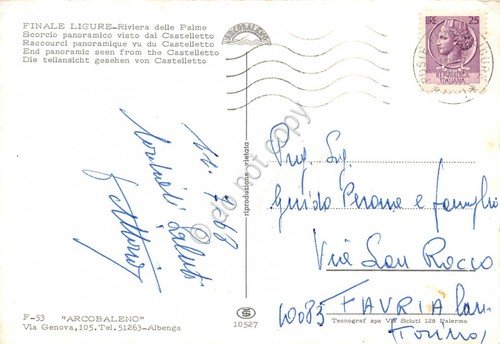 FINALE LIGURE-Riviera delle Palme
Scorcio panoramico visto dal Castelletto
Raccourci panoramique vu du Castelletto
End panoramic seen from the Castelletto
Die teilansicht gesehen von Castelletto
ARCOBALENO
LIRE 25
ITALIANA
68
Cordiali Saluti
riproduzione vietata
do not copy
Guido Perona e famiglia
Via San Rocco
10083 FAVRIA Can
Torino
F-53 "ARCOBALENO"
Via Genova,105.Tel.51263-Albenga
10527
Tecnograf spa Via Sciuti 128 Palermo